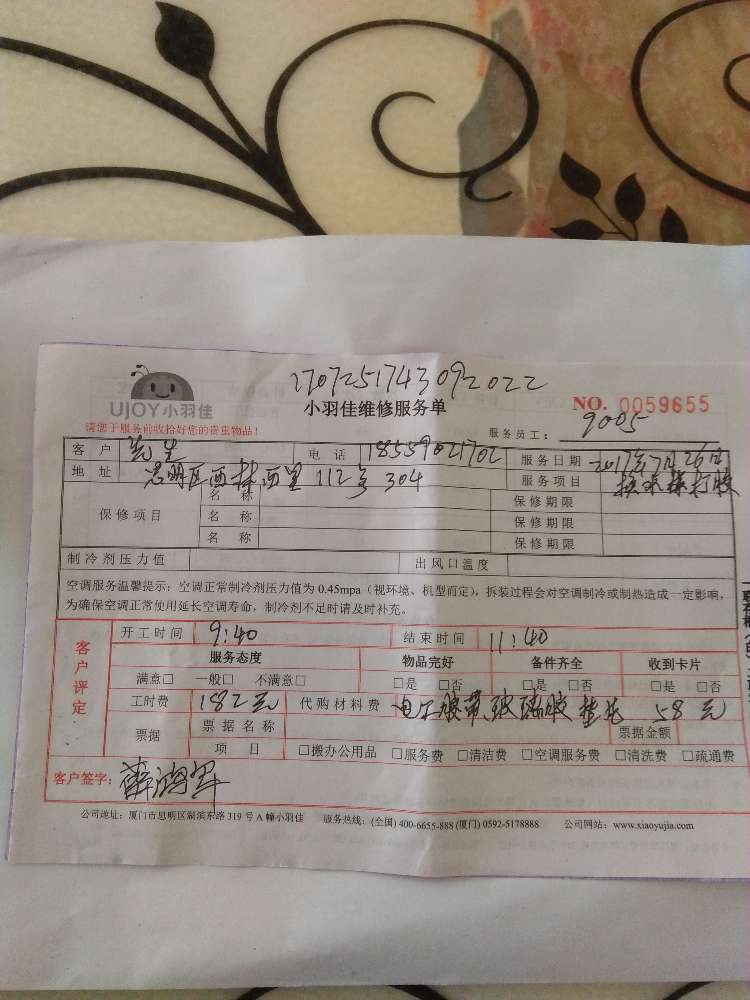 UJOY小羽佳
170725174309 2022
小羽佳维修服务单
NO. 0059655
请您于服务前收拾好您的贵重物品!
服务员工: 9005
客户 先生 电话 18559021702 服务日期 2017年7月26日
地址 思明区西林西里112号304 服务项目 打胶
保修项目 名称 保修期限
名称 保修期限
名称 保修期限
制冷剂压力值 出风口温度
空调服务温馨提示:空调正常制冷剂压力值为0.45mpa(视环境、机型而定),拆装过程会对空调制冷或制热造成一定影响,
为确保空调正常使用延长空调寿命,制冷剂不足时请及时补充。
客户评定
开工时间 9:40 结束时间 11:40
服务态度 物品完好 备件齐全 收到卡片
满意□ 一般□ 不满意□ □是 □否 □是 □否 □是 □否
工时费 182元 代购材料费 电工胶带、玻璃胶 58元
票据 票据名称 票据金额
项目 □搬办公用品 □服务费 □清洁费 □空调服务费 □清洗费 □疏通费
客户签字:
公司地址:厦门市思明区湖滨东路319号A幢小羽佳 服务热线:(全国)400-6655-888(厦门)0592-5178888 公司网站:www.xiaoyujia.com